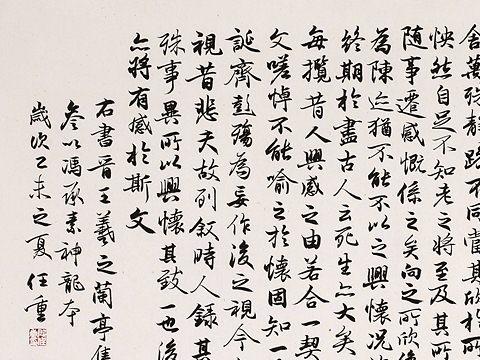 舍萬殊静躁不同當其欣於所
怏然自足不知老之將至及其所
随事遷感慨係之矣向之所欣
為陳迹猶不能不以之興懷况
終期於盡古人云死生亦大矣
每攬昔人興感之由若合一契
文嗟悼不能喻之於懷固知一
誕齊彭殤為妄作後之視今
視昔悲夫故列叙時人錄其
殊事異所以興懷其致一也後
亦將有感於斯文
右書晋王羲之蘭亭集
叅以馮承素神龍本
歲次乙未之夏任重